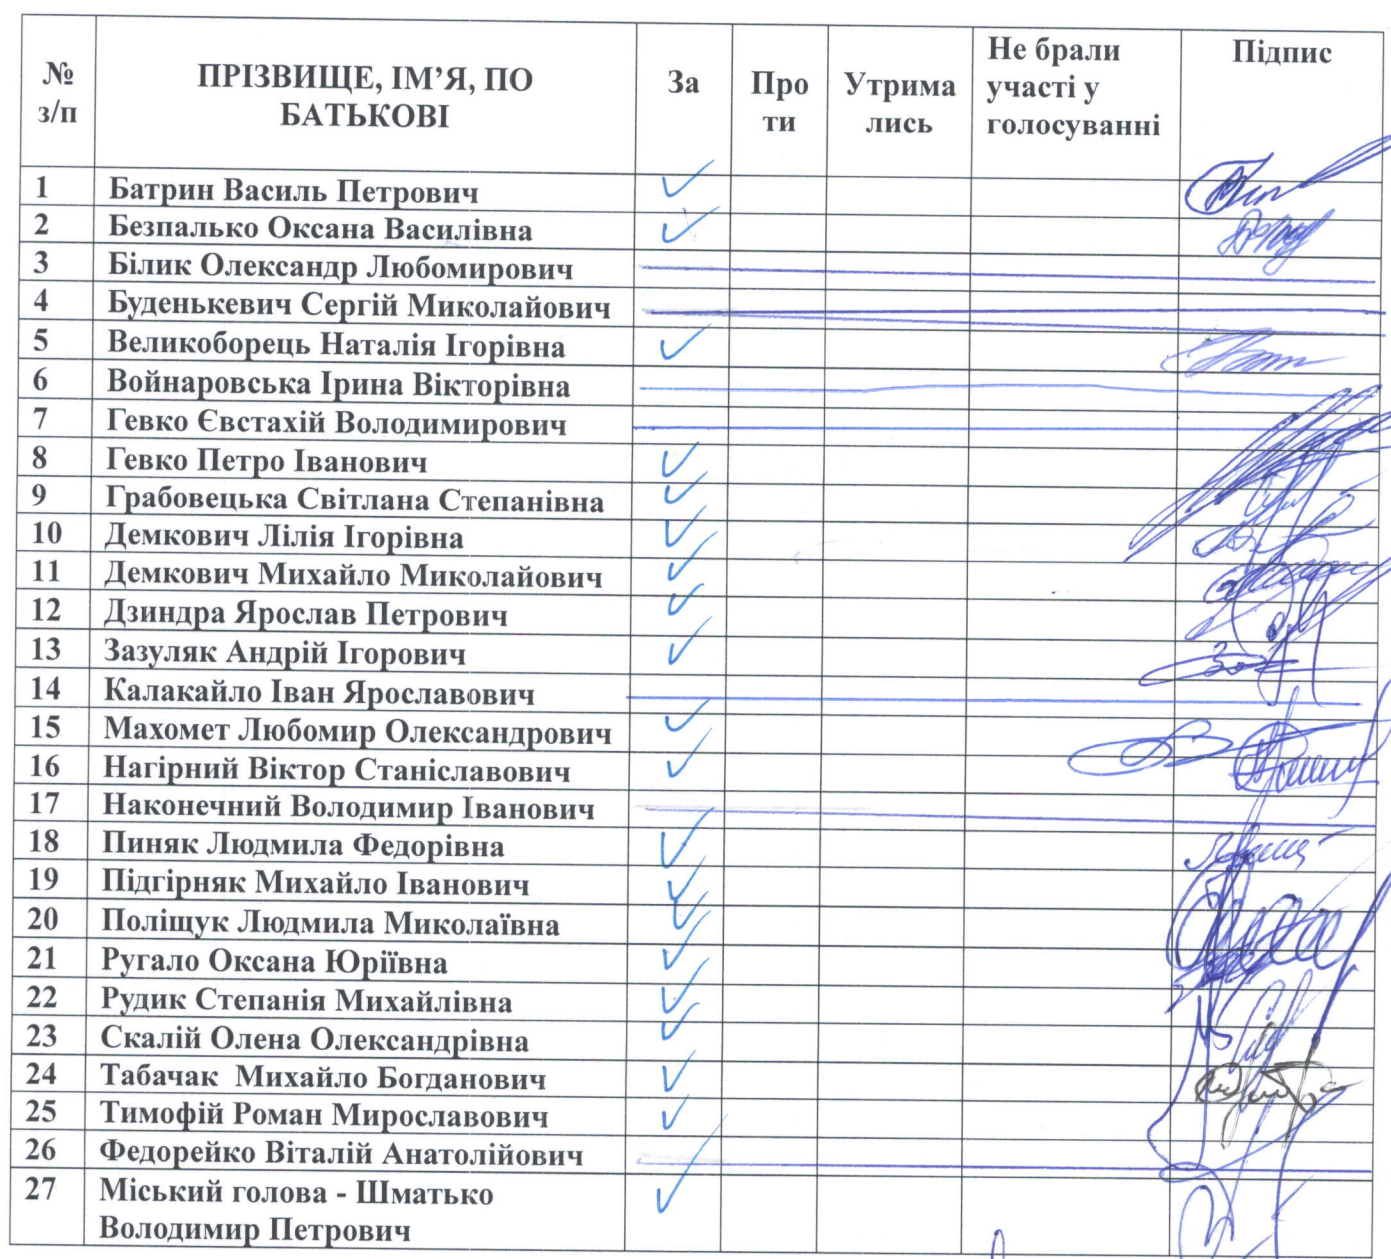 № з/п ПРІЗВИЩЕ, ІМ’Я, ПО БАТЬКОВІ За Про ти Утрима лись Не брали участі у голосуванні Підпис
1 Батрин Василь Петрович ✓
2 Безпалько Оксана Василівна ✓
3 Білик Олександр Любомирович
4 Буденькевич Сергій Миколайович
5 Великоборець Наталія Ігорівна ✓
6 Войнаровська Ірина Вікторівна
7 Гевко Євстахій Володимирович
8 Гевко Петро Іванович ✓
9 Грабовецька Світлана Степанівна ✓
10 Демкович Лілія Ігорівна ✓
11 Демкович Михайло Миколайович ✓
12 Дзиндра Ярослав Петрович ✓
13 Зазуляк Андрій Ігорович ✓
14 Калакайло Іван Ярославович
15 Махомет Любомир Олександрович ✓
16 Нагірний Віктор Станіславович ✓
17 Наконечний Володимир Іванович
18 Пиняк Людмила Федорівна ✓
19 Підгірняк Михайло Іванович ✓
20 Поліщук Людмила Миколаївна ✓
21 Ругало Оксана Юріївна ✓
22 Рудик Степанія Михайлівна ✓
23 Скалій Олена Олександрівна ✓
24 Табачак Михайло Богданович ✓
25 Тимофій Роман Мирославович ✓
26 Федорейко Віталій Анатолійович
27 Міський голова - Шматько ✓
Володимир Петрович